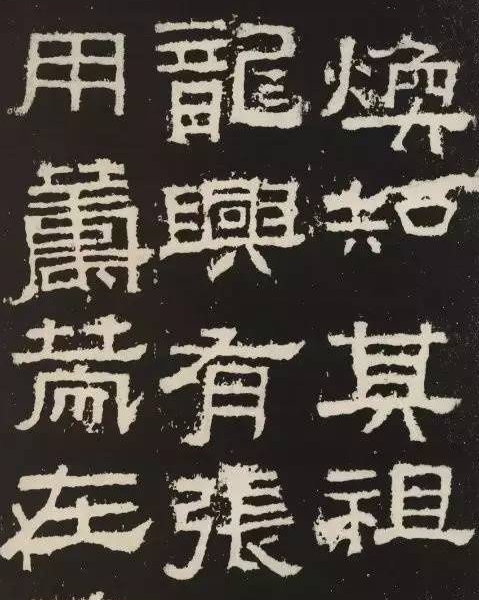 煥知其祖
龍興有張
用籌策在